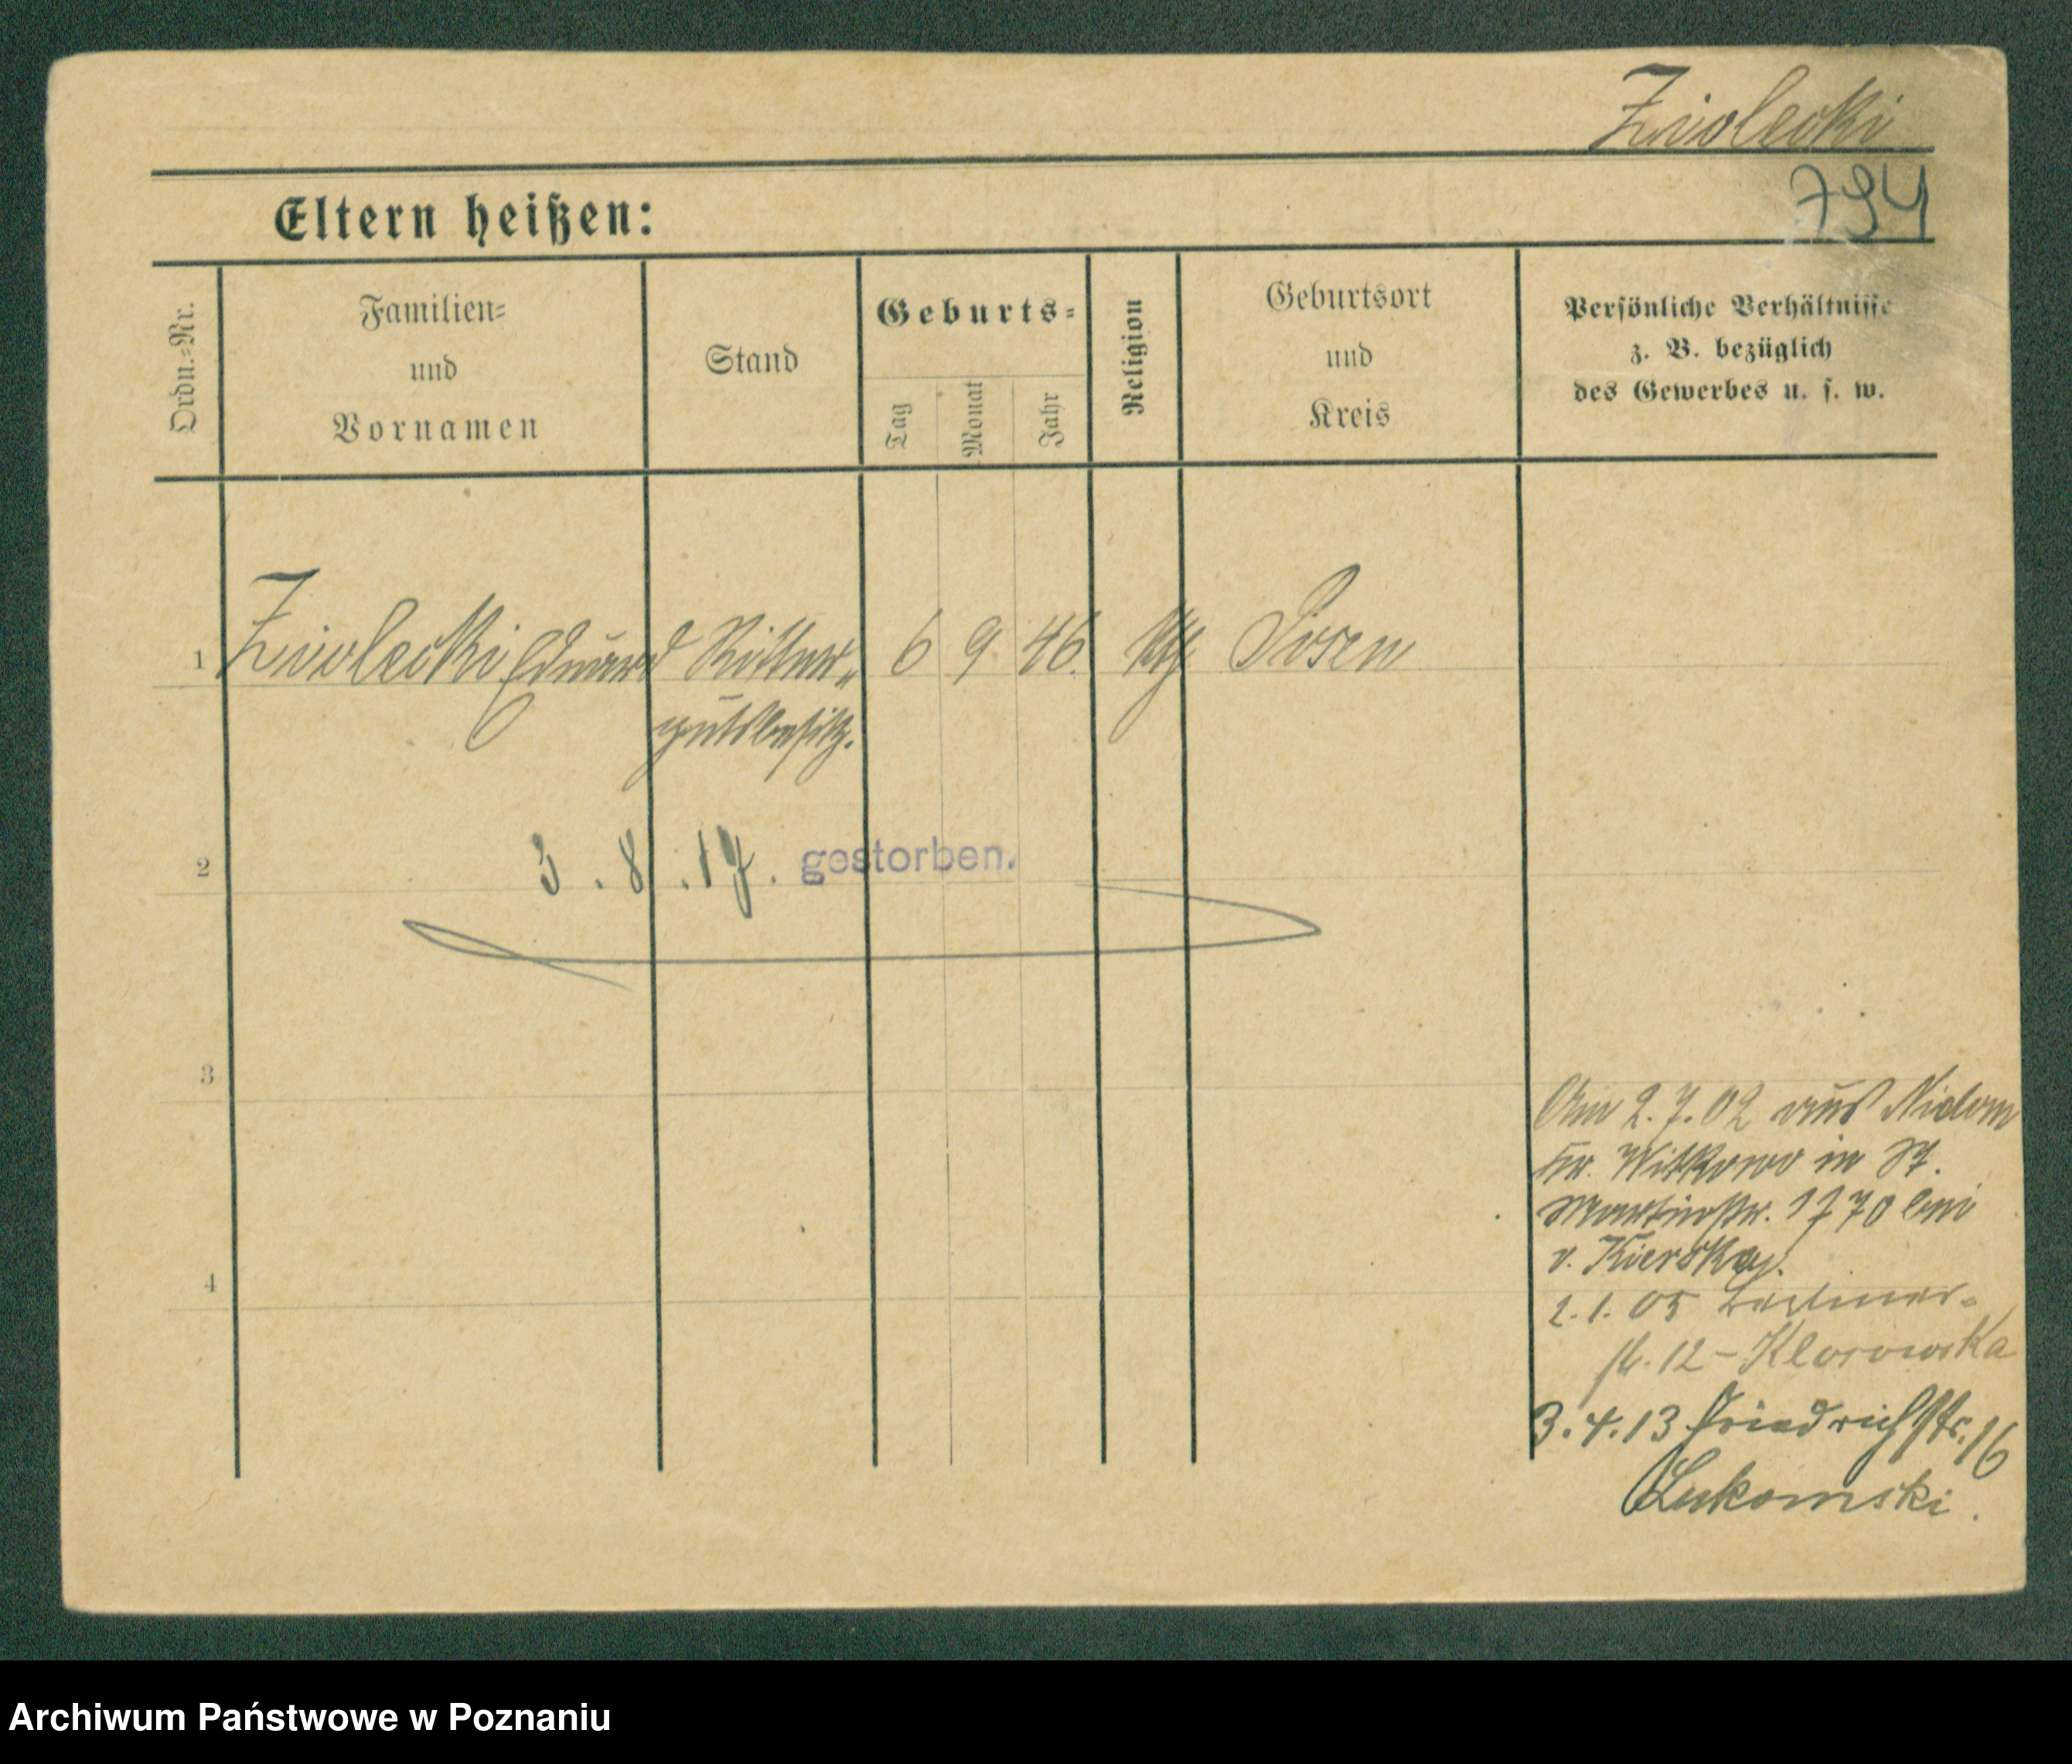 Ziolecki
794
Eltern heißen:
Ordn.=Nr.
Familien=
und
Vornamen
Stand
Geburts=
Tag
Monat
Jahr
Religion
Geburtsort
und
Kreis
Persönliche Verhältnisse
z. B. bezüglich
des Gewerbes u. s. w.
1 Ziolecki Eduard Ritter„ 6 9 46. kth Posen
gutsbesitz.
2 3.8.17. gestorben.
3
Am 2.7.02 aus
Kr. Witkowo in St.
Martinstr. bei
4
v.
2.1.05 Berliner=
str. 12 –
3.4.13 Friedrichstr. 16
Lukomski.
Archiwum Państwowe w Poznaniu